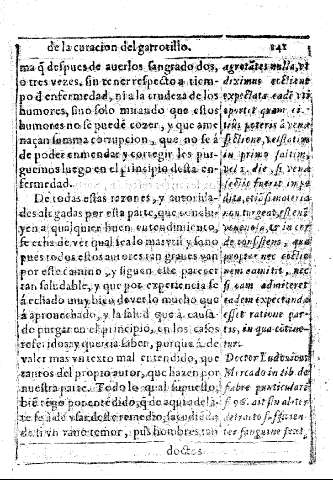 de la curacion del garrotillo.
ma q̃ despues de auerlos sangrado dos,
o tres vezes, sin tener respecto a tiem-
po d̃ enfermedad, ni a la crudeza de los
humores, sino solo mirando que estos
humores no se puedẽ cozer, y que ame
naçan summa corrupcion, que no se ã
de poder enmendar y corregir los pur
guemos luego en el principio desta en
fermedad.
De todas estas razones, y autorida-
des alegadas por esta parte, que conclu-
yen a qualquier buen entendimiento,
se echa de ver qual sea lo mas vtil y sano
pues todos estos autores tan graues van
por este camino, y siguen este parecer
tan saludable, y que por experiencia se
à echado muy bien de ver lo mucho que
à aprouechado, y la salud que à causa-
do purgar en el principio, en los casos
referidos: y querria saber, porque à de
valer mas vn texto mal entendido, que
tantos del propio autor, que hazen por
nuestra parte. Todo lo qual supuesto,
biẽ tẽgo por entendido, q̃ de aqui adelã-
te se à de vsar deste remedio, sacudiẽdo
de si vn vano temor, pues hombres tan
doctos
agrotates nulla, vt
diximus coctionis
expectata eadẽ vti
oportet quam ci-
tius poteris à venæ
sectione, vel statim
in primo saltim,
vel 2. die, si venæ
sectio fuerit impe
dita, etiã si materia
non turgeat, est enĩ
venenosa, ex in cor
de consistens, qua
propter nec coctio
nem admitit, nec
si eam admiteret
eadem expectanda
esset ratione par-
tis, in qua cõtine-
tur.
Doctor Ludouicus
Mercado in lib. de
febre puncticulari
f. 96. ait sin aliter
detracto sufficien-
ter sanguine fuat,